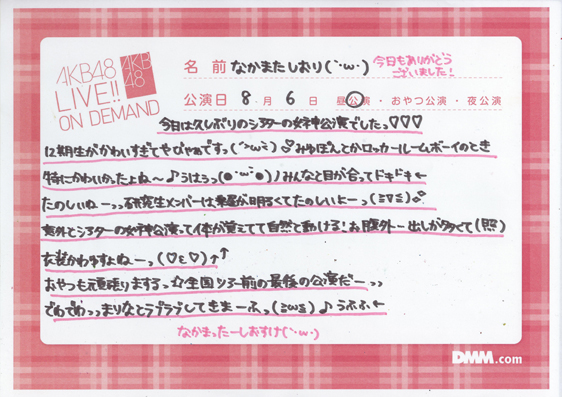 AKB48
LIVE!!
ON DEMAND
AKB
48
名 前 なかまたしおり(`･ω･)
今日もありがとう
ございました!
公演日 8 月 6 日 昼公演 ・ おやつ公演 ・ 夜公演
今日は久しぶりのシアターの女神公演でしたっ♡♡♡
12期生がかわいすぎてもぴゃあですっ みゅぽんてかロッカールームボーイのとき
特にかわいかったよね〜♪うほうっ みんなと目が合ってドキドキ←
たのしいねーっっ研究生メンバーは楽屋が明るくてたのしいよーっ(ミ▽ミ)
意外とシアターの女神公演って体が覚えてて自然と動ける!お腹外ー出しが多くて(照)
衣装かわゆすよねーっ(♡ε♡)↑↑
おやつも頑張りまするっ☆全国ツアー前の最後の公演だーっっ
でわでわっっまりなとラブラブしてきまーふっ(ミωミ)♪うふふ←
なかまったーしおすけ(`･ω･)
DMM.com